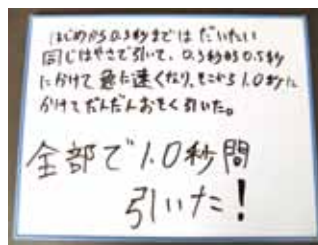 はじめから0.3秒まではだいたい
同じはやさで引いて、0.3秒から0.5秒
にかけて急に速くなり、そこから1.0秒に
かけてだんだんおそく引いた。
全部で1.0秒間
引いた!